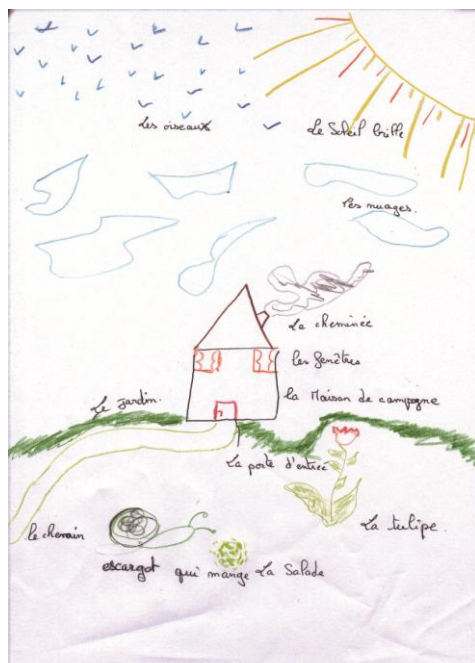 Les oiseaux
Le Soleil brille
les nuages.
La cheminée
les fenêtres
la Maison de campagne
Le jardin.
La porte d'entrée
La tulipe.
le chemin
escargot qui mange La Salade